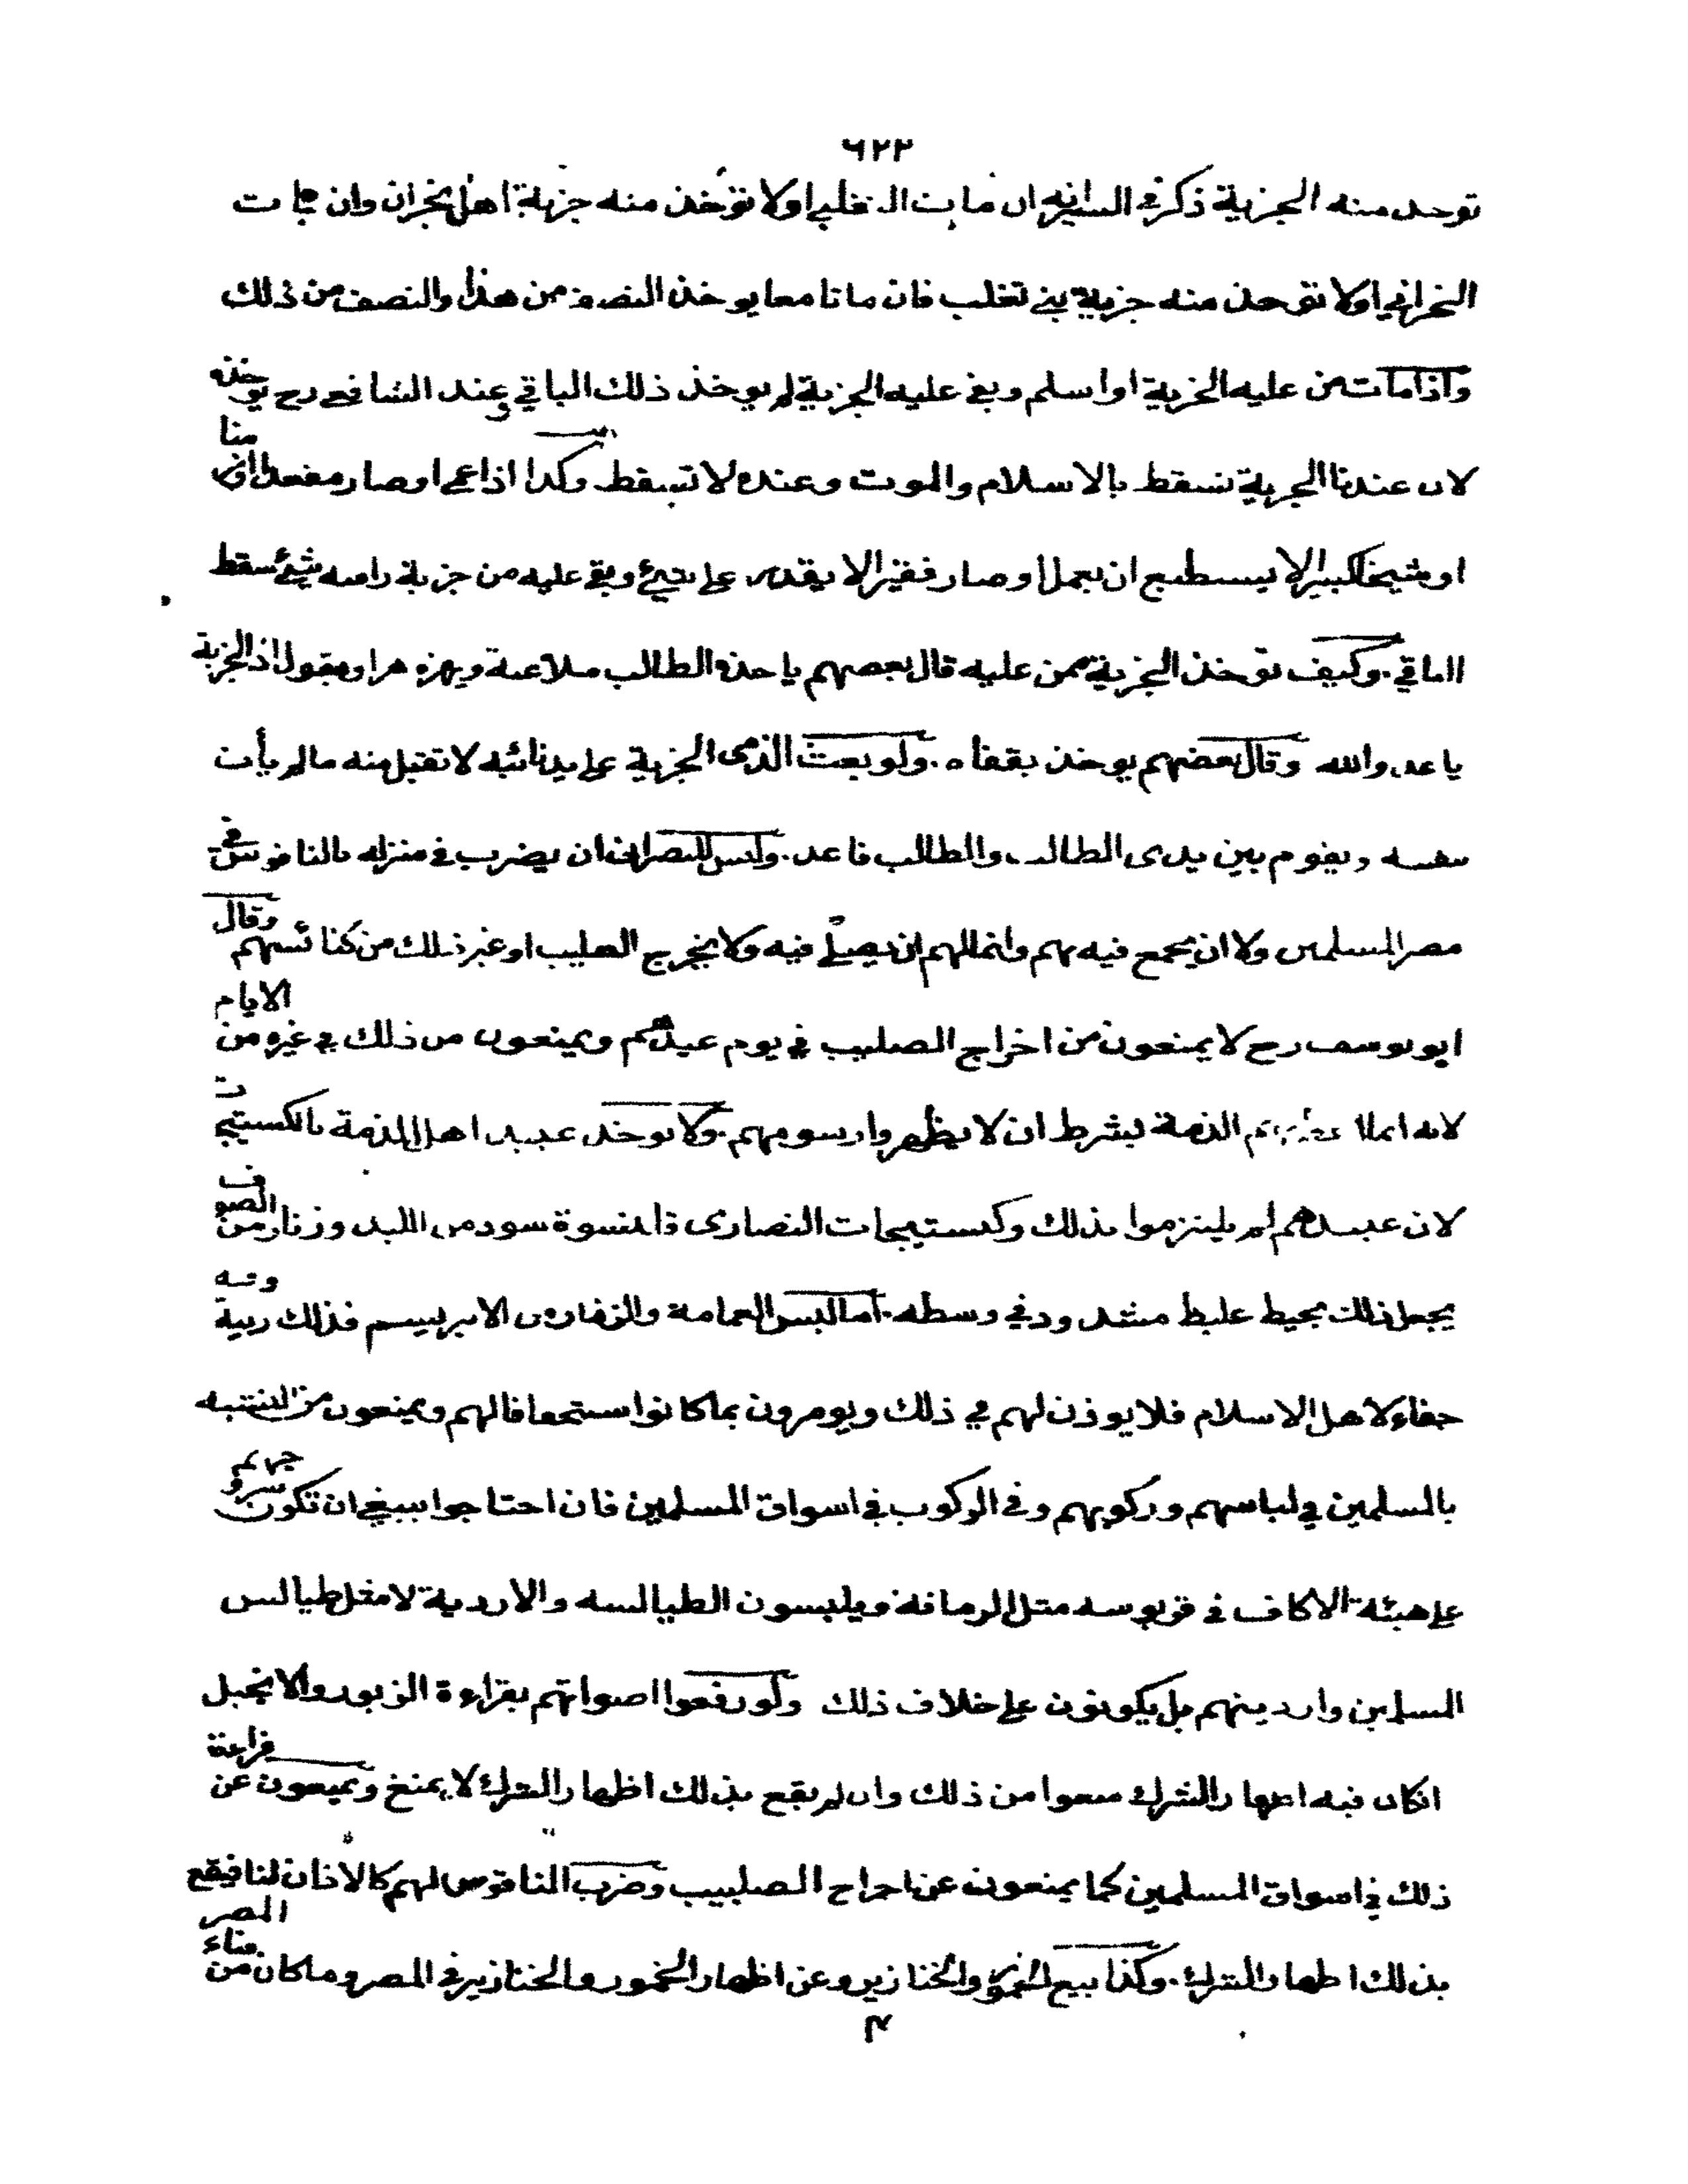 ٦٢٢
توخد منه الجزية ذكر في السراجيه ان مات التغلبي اولا توخذ منه جزية اهل نجران وان مات
النجراني اولا توخذ منه جزية بني تغلب فان ماتا معا يوخذ النصف من هذا والنصف من ذلك
واذا مات من عليه الجزية او اسلم وبقي عليه الجزية لم يوخذ ذلك الباقي وعند الشافعي رح يوخذ
لان عندنا الجزية تسقط بالاسلام والموت وعنده لا تسقط وكذا اذا عمي او صار مقعدا او زمنا
او شيخا كبيرا لا يستطيع ان يعمل او صار فقيرا لا يقدر على شيئ وبقي عليه من جزية راسه شيئ سقط
الباقي. وكيف توخذ الجزية ممن عليه قال بعضهم ياخذه الطالب ويهزه هزا ويقول اد الجزية
يا عدو الله وقال بعضهم يوخذ بقفاه. ولو بعث الذمي الجزية على يد نائبه لا تقبل منه مالم يأت
بنفسه ويقوم بين يدى الطالب والطالب قاعد. وليس للنصراني ان يضرب في منزله بالناقوس في
مصر المسلمين ولا ان يجمع فيه بهم وانما لهم ان يصلي فيه ولا يخرج الصليب او غير ذلك من كنائسهم وقال
ابو يوسف رح لا يمنعون من اخراج الصليب في يوم عيدهم ويمنعون من ذلك في غيره من الايام
لانه انما الذمة بشرط ان لا يظهروا رسومهم. ولا يوخذ عبيد اهل الذمة بالكستيجات
لان عبيدهم لم يلتزموا بذلك وكستيجات النصارى قلنسوة سود من اللبد وزنار من الصوف
يجعل ذلك بخيط غليظ مشدود في وسطه. اما لبس العمامة والزنار من الابريسم فذلك زينة وفيه
جفاء لاهل الاسلام فلا يوذن لهم في ذلك ويومرون بما كانوا استخفافا لهم ويمنعون من التشبه
بالمسلمين في لباسهم وركوبهم وفي الركوب في اسواق المسلمين فان احتاجوا ينبغي ان تكون سروجهم
على هيئة الاكاف في قربوسه مثل الرمانة ويلبسون الطيالسه والاردية لا مثل طيالس
المسلمين وارديتهم بل يكونون على خلاف ذلك ولو رفعوا اصواتهم بقراءة الزبور والانجيل
انكان فيه اظهار الشرك منعوا من ذلك وان لم يقع بذلك اظهار الشرك لا يمنع ويمنعون عن قراءة
ذلك في اسواق المسلمين كما يمنعون عن اخراج الصليب وضرب الناقوس لهم كالاذان لنا فيقع
بذلك اظهار الشرك. وكذا بيع الخمور والخنازير وعن اظهار الخمور والخنازير في المصر وما كان من فناء المصر